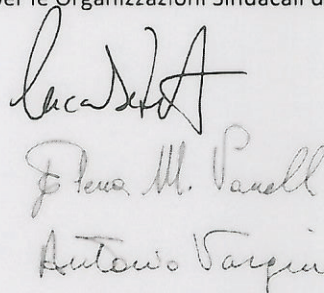 per le Organizzazioni Sindacali d
Elena M. Vanell
Antonio Vargiu